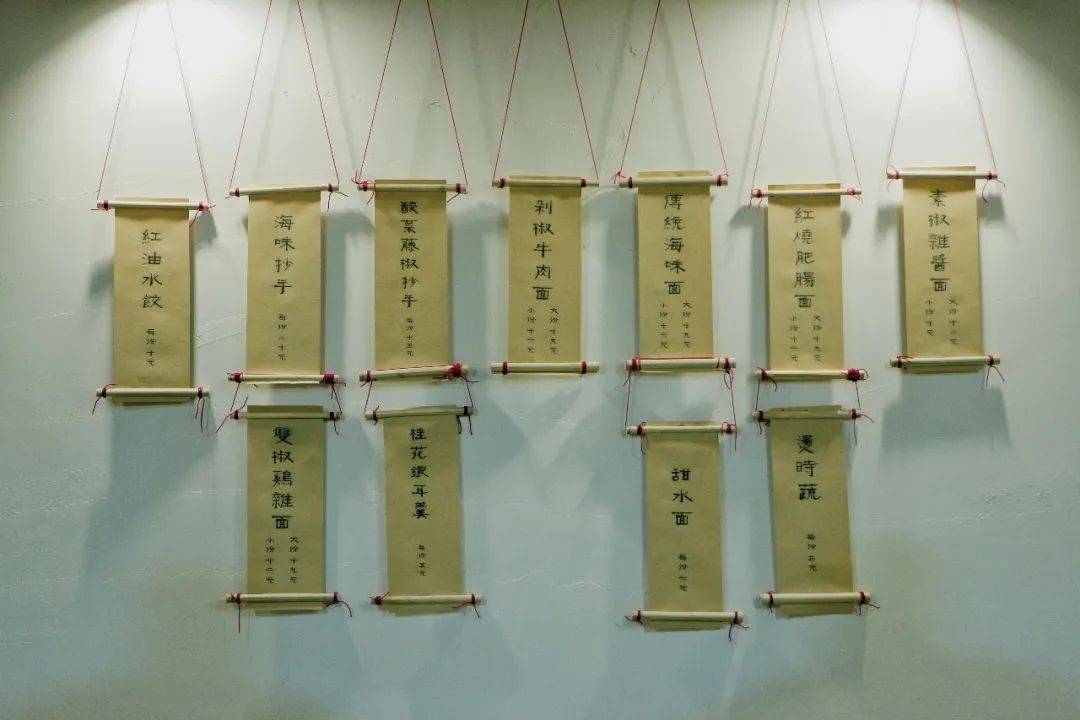 紅油水餃
每份十元
海味抄手
每份二十元
酸菜藤椒抄手
每份十五元
剁椒牛肉面
大份十九元
小份十六元
傳統海味面
大份十九元
小份十六元
紅燒肥腸面
大份十九元
小份十六元
素椒雜醬面
大份十三元
小份十元
雙椒鷄雜面
大份十九元
小份十六元
桂花銀耳羹
每份五元
甜水面
每份六元
燙時蔬
每份三元